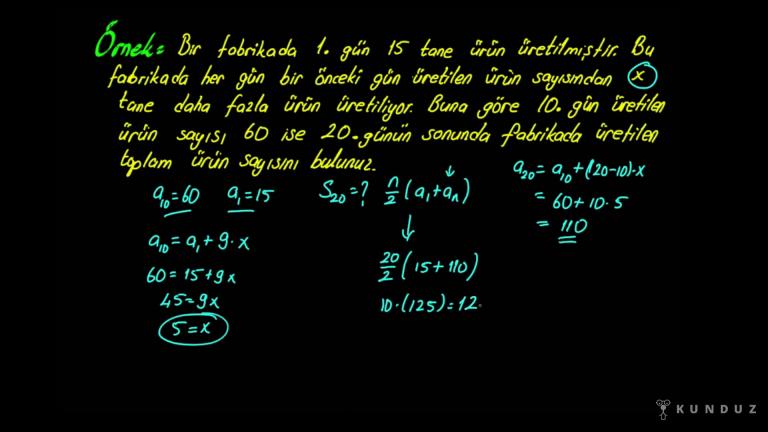 Örnek= Bir fabrikada 1. gün 15 tane ürün üretilmiştir. Bu
fabrikada her gün bir önceki gün üretilen ürün sayısından x
tane daha fazla ürün üretiliyor. Buna göre 10. gün üretilen
ürün sayısı 60 ise 20. günün sonunda fabrikada üretilen
toplam ürün sayısını bulunuz.
a₁₀=60 a₁=15
a₁₀=a₁+9·x
60=15+9x
45=9x
5=x
S₂₀=? n/2(a₁+aₙ)
20/2(15+110)
10·(125)=12
a₂₀=a₁₀+(20-10)·x
=60+10·5
=110
KUNDUZ